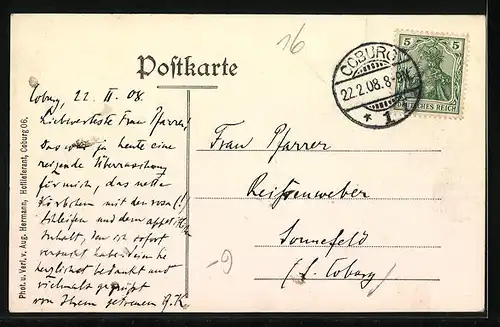 16
Postkarte
COBURG
22.2.08.8-9N.
* 1.
5 5
DEUTSCHES REICH
Coburg, 22. II. 08.
Liebwerteste Frau Pfarrer!
Das war ja heute eine
reizende Überraschung
für mich, das nette
Körbchen mit den rosa (!)
Schleifen und dem
Inhalt, den ich sofort
versucht habe
herzlichst bedankt und
vielmals gegrüßt
von Ihrem getreuen A. K.
Frau Pfarrer
Reissenweber
Sonnefeld
(b. Coburg)
-9
Phot. u. Verl. v. Aug. Hermann, Hoflieferant, Coburg 06.